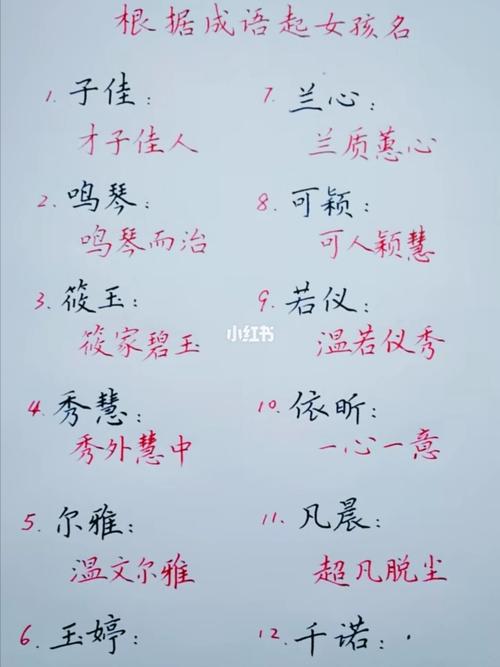 根据成语起女孩名
1. 子佳：
才子佳人
2. 鸣琴：
鸣琴而治
3. 筱玉：
筱家碧玉
4. 秀慧：
秀外慧中
5. 尔雅：
温文尔雅
6. 玉婷：
7. 兰心：
兰质蕙心
8. 可颖：
可人颖慧
9. 若仪：
温若仪秀
10. 依昕：
一心一意
11. 凡晨：
超凡脱尘
12. 千诺：
小红书